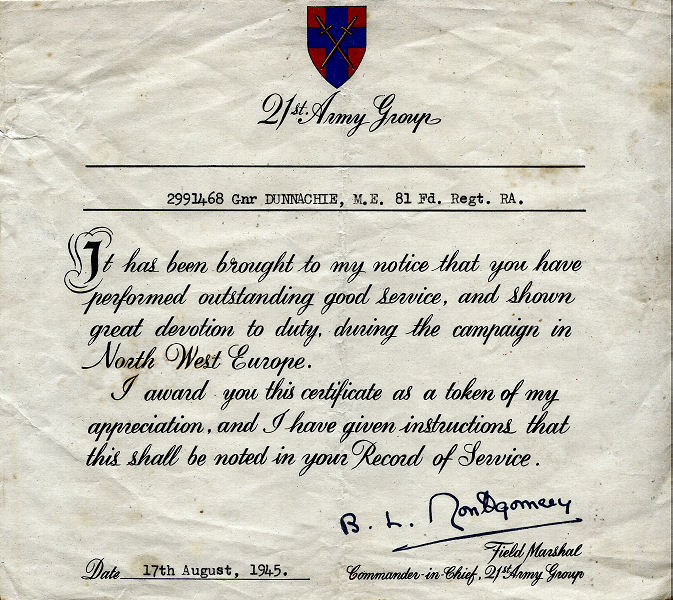 21st. Army Group
2991468 Gnr DUNNACHIE, M.E. 81 Fd. Regt. RA.
It has been brought to my notice that you have
performed outstanding good service, and shown
great devotion to duty, during the campaign in
North West Europe.
I award you this certificate as a token of my
appreciation, and I have given instructions that
this shall be noted in your Record of Service.
B. L. Montgomery
Field Marshal
Date 17th August, 1945. Commander-in-Chief, 21st Army Group